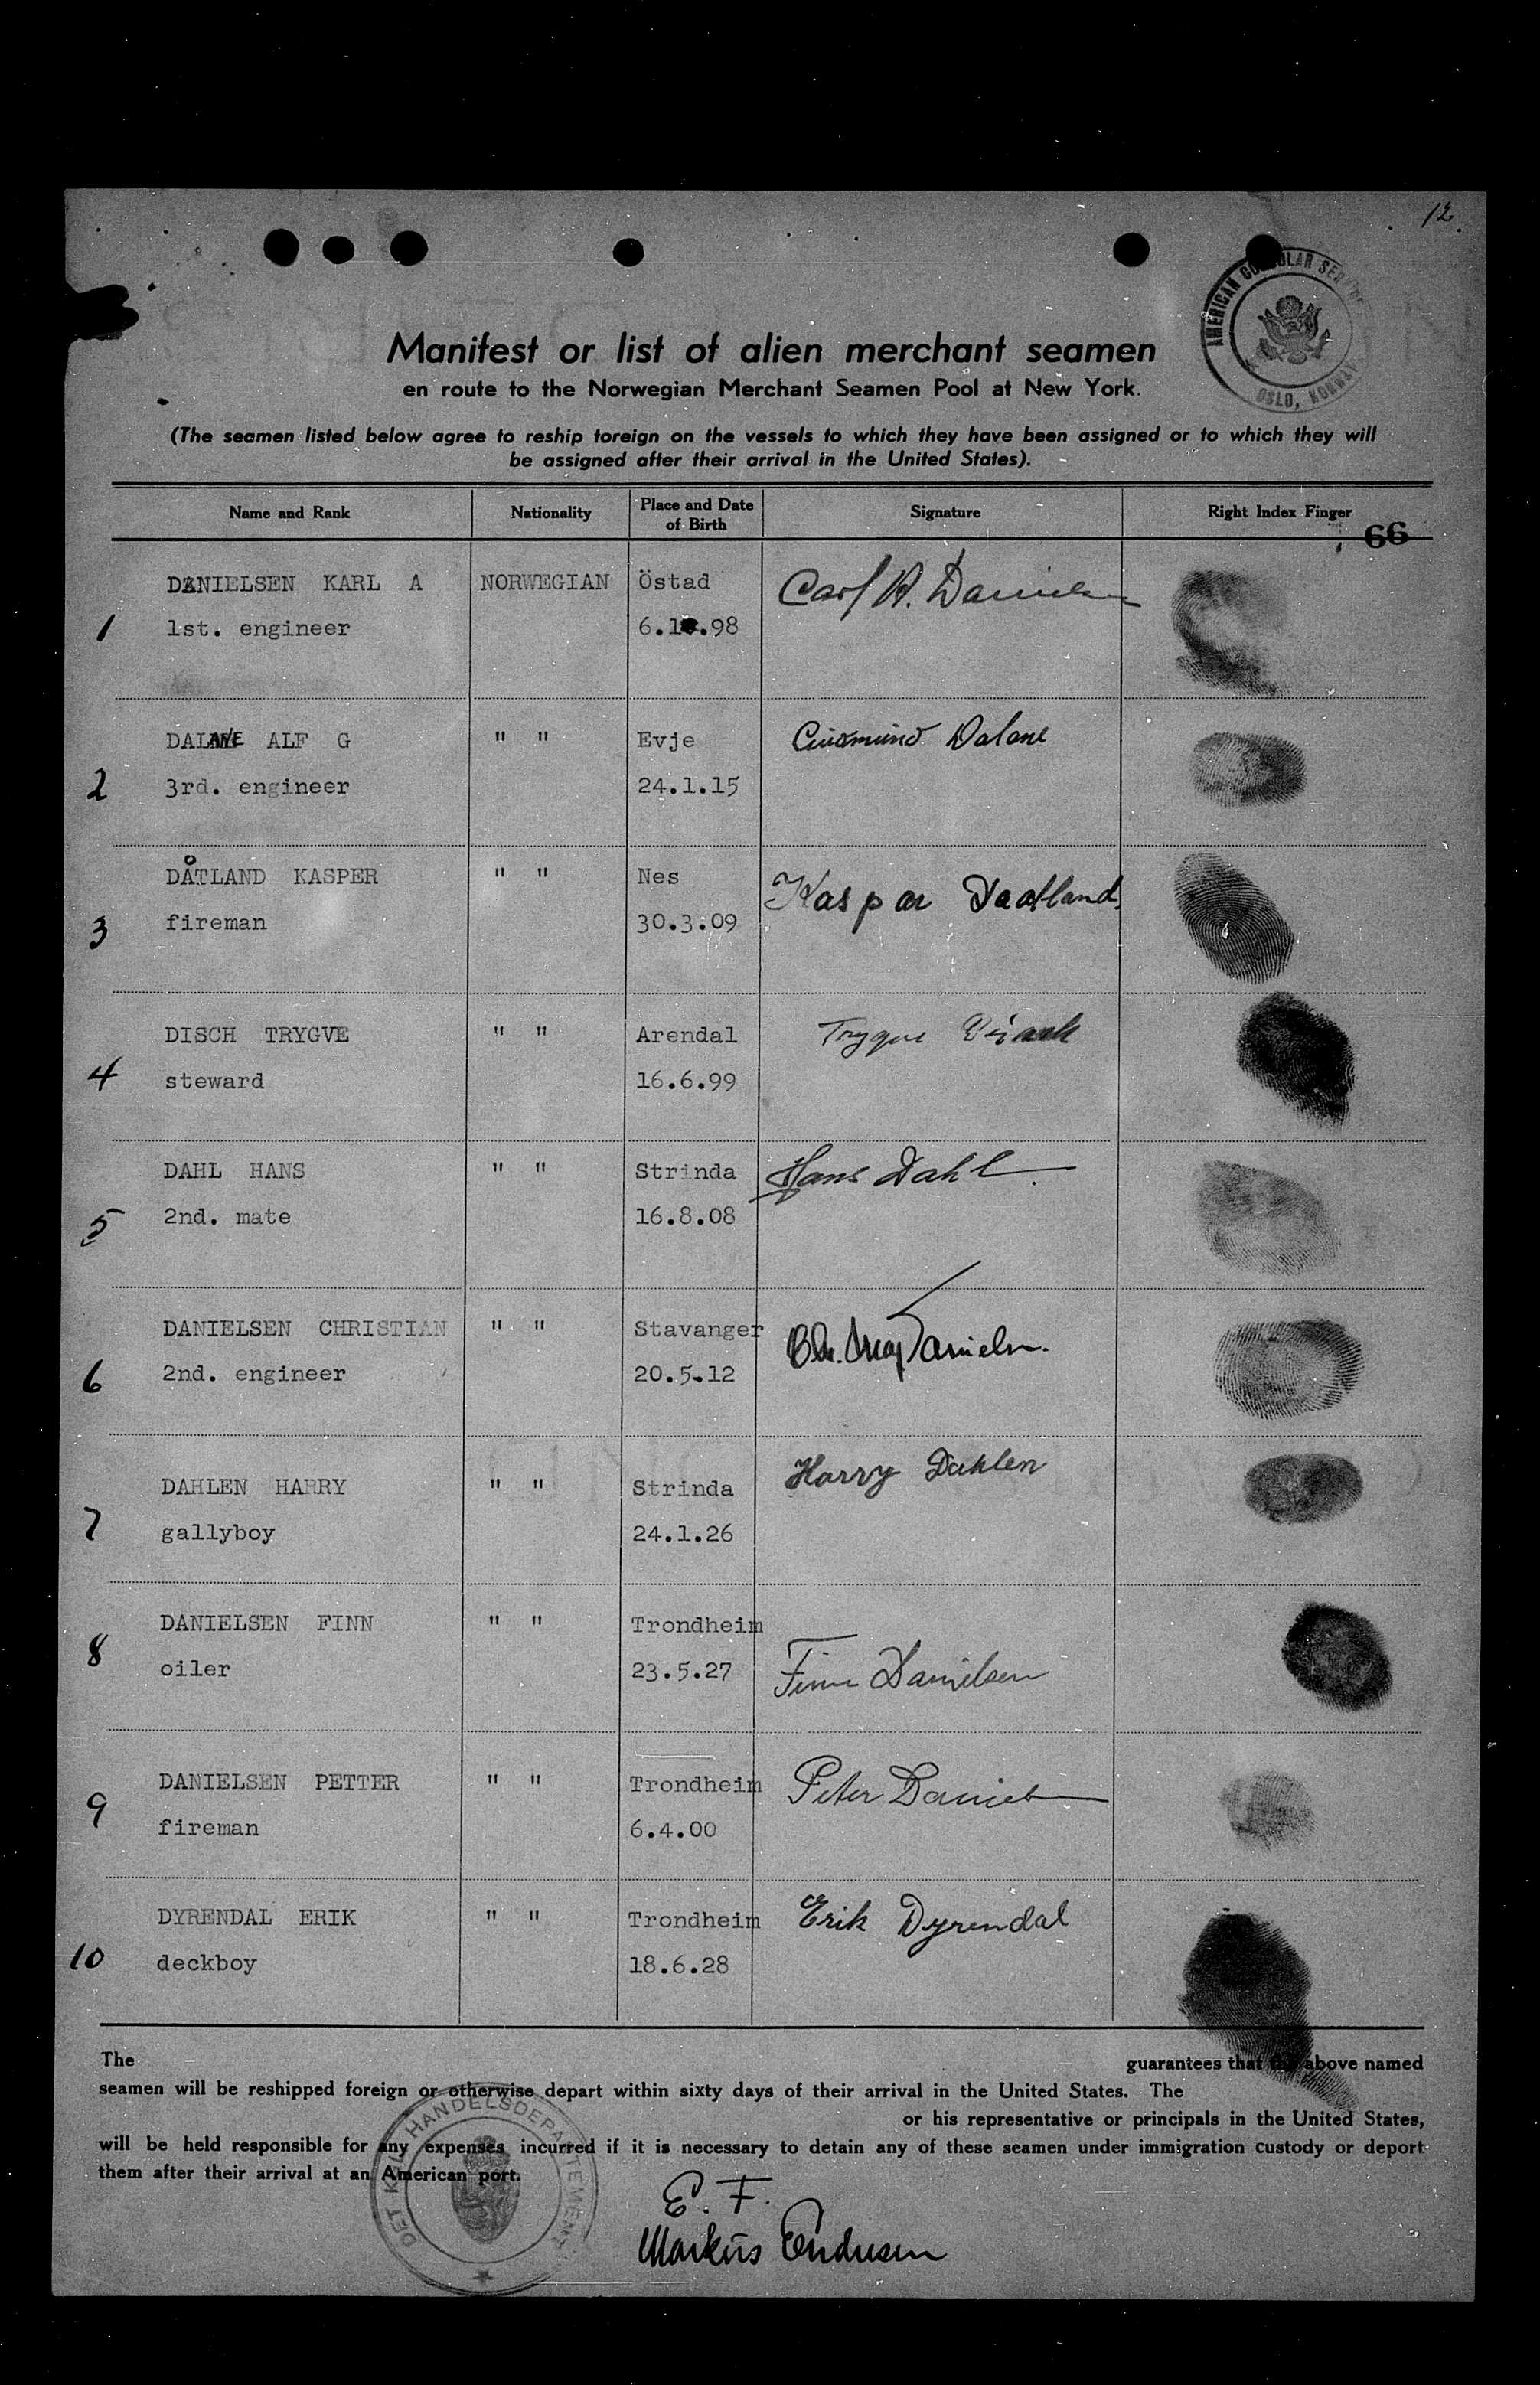 12.
AMERICAN CONSULAR SERVICE
OSLO, NORWAY
Manifest or list of alien merchant seamen
en route to the Norwegian Merchant Seamen Pool at New York.
(The seamen listed below agree to reship foreign on the vessels to which they have been assigned or to which they will
be assigned after their arrival in the United States).
Name and Rank Nationality Place and Date of Birth Signature Right Index Finger
66
DANIELSEN KARL A NORWEGIAN Östad Carl A. Danielsen
1 1st. engineer 6.1.98
DALANE ALF G " " Evje Gudmund Dalane
2 3rd. engineer 24.1.15
DÅTLAND KASPER " " Nes Kaspar Daatland
3 fireman 30.3.09
DISCH TRYGVE " " Arendal Trygve Disch
4 steward 16.6.99
DAHL HANS " " Strinda Hans Dahl
5 2nd. mate 16.8.08
DANIELSEN CHRISTIAN " " Stavanger Danielsen.
6 2nd. engineer 20.5.12
DAHLEN HARRY " " Strinda Harry Dahlen
7 gallyboy 24.1.26
DANIELSEN FINN " " Trondheim
8 oiler 23.5.27 Finn Danielsen
DANIELSEN PETTER " " Trondheim Peter Danielsen
9 fireman 6.4.00
DYRENDAL ERIK " " Trondheim Erik Dyrendal
10 deckboy 18.6.28
The guarantees that the above named
seamen will be reshipped foreign or otherwise depart within sixty days of their arrival in the United States. The
or his representative or principals in the United States,
will be held responsible for any expenses incurred if it is necessary to detain any of these seamen under immigration custody or deport
them after their arrival at an American port.
DET KGL. HANDELSDEPARTEMENT
E. F.
Markus Endresen